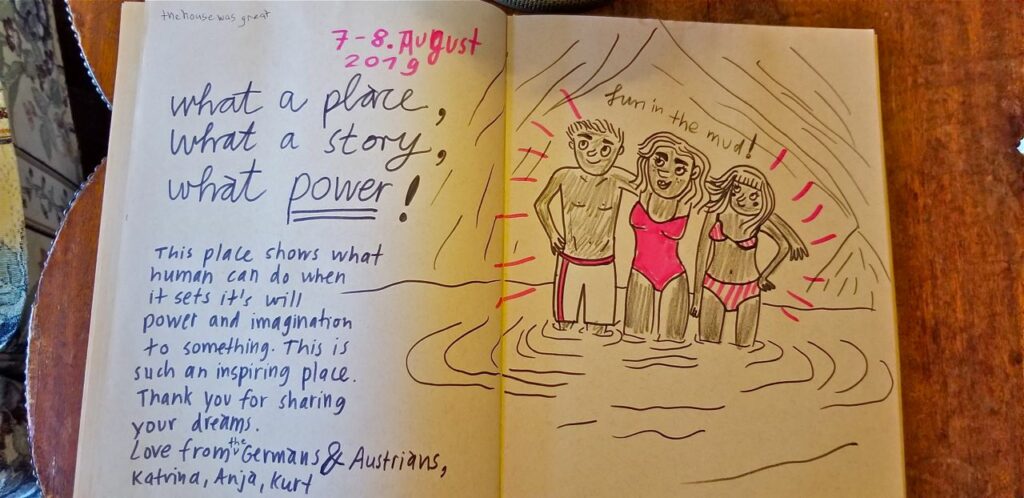 the house was great
7-8. August
2019
what a place,
what a story,
what power!
This place shows what
human can do when
it sets it's will
power and imagination
to something. This is
such an inspiring place.
Thank you for sharing
your dreams.
Love from the Germans & Austrians,
Katrina, Anja, Kurt
fun in the mud!